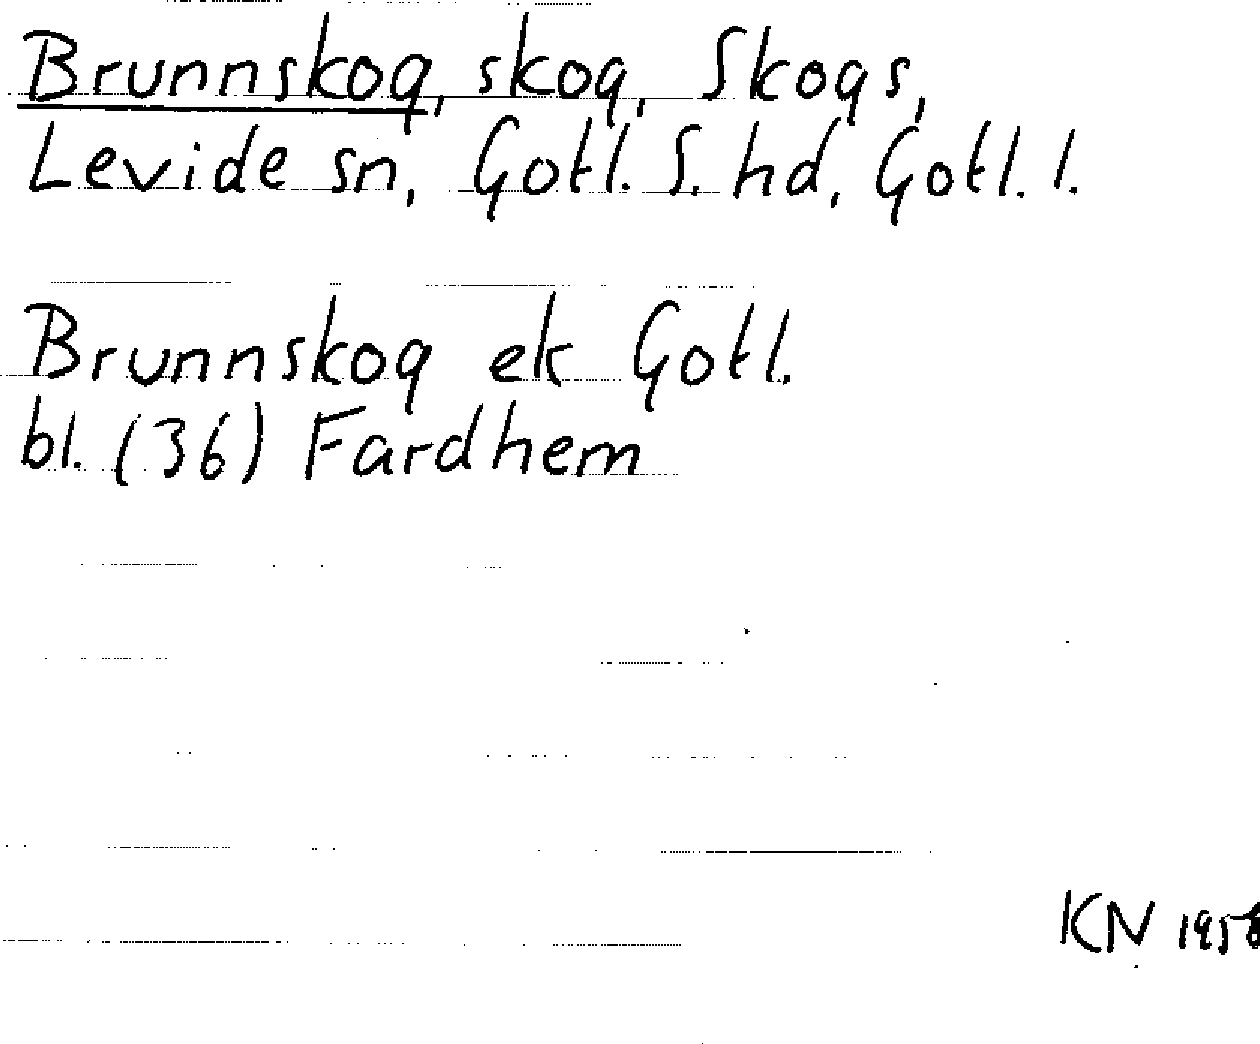 Brunnskog, skog, Skogs,
Levide sn, Gotl. S. hd, Gotl. l.
Brunnskog ek Gotl.
bl. (36) Fardhem
KN